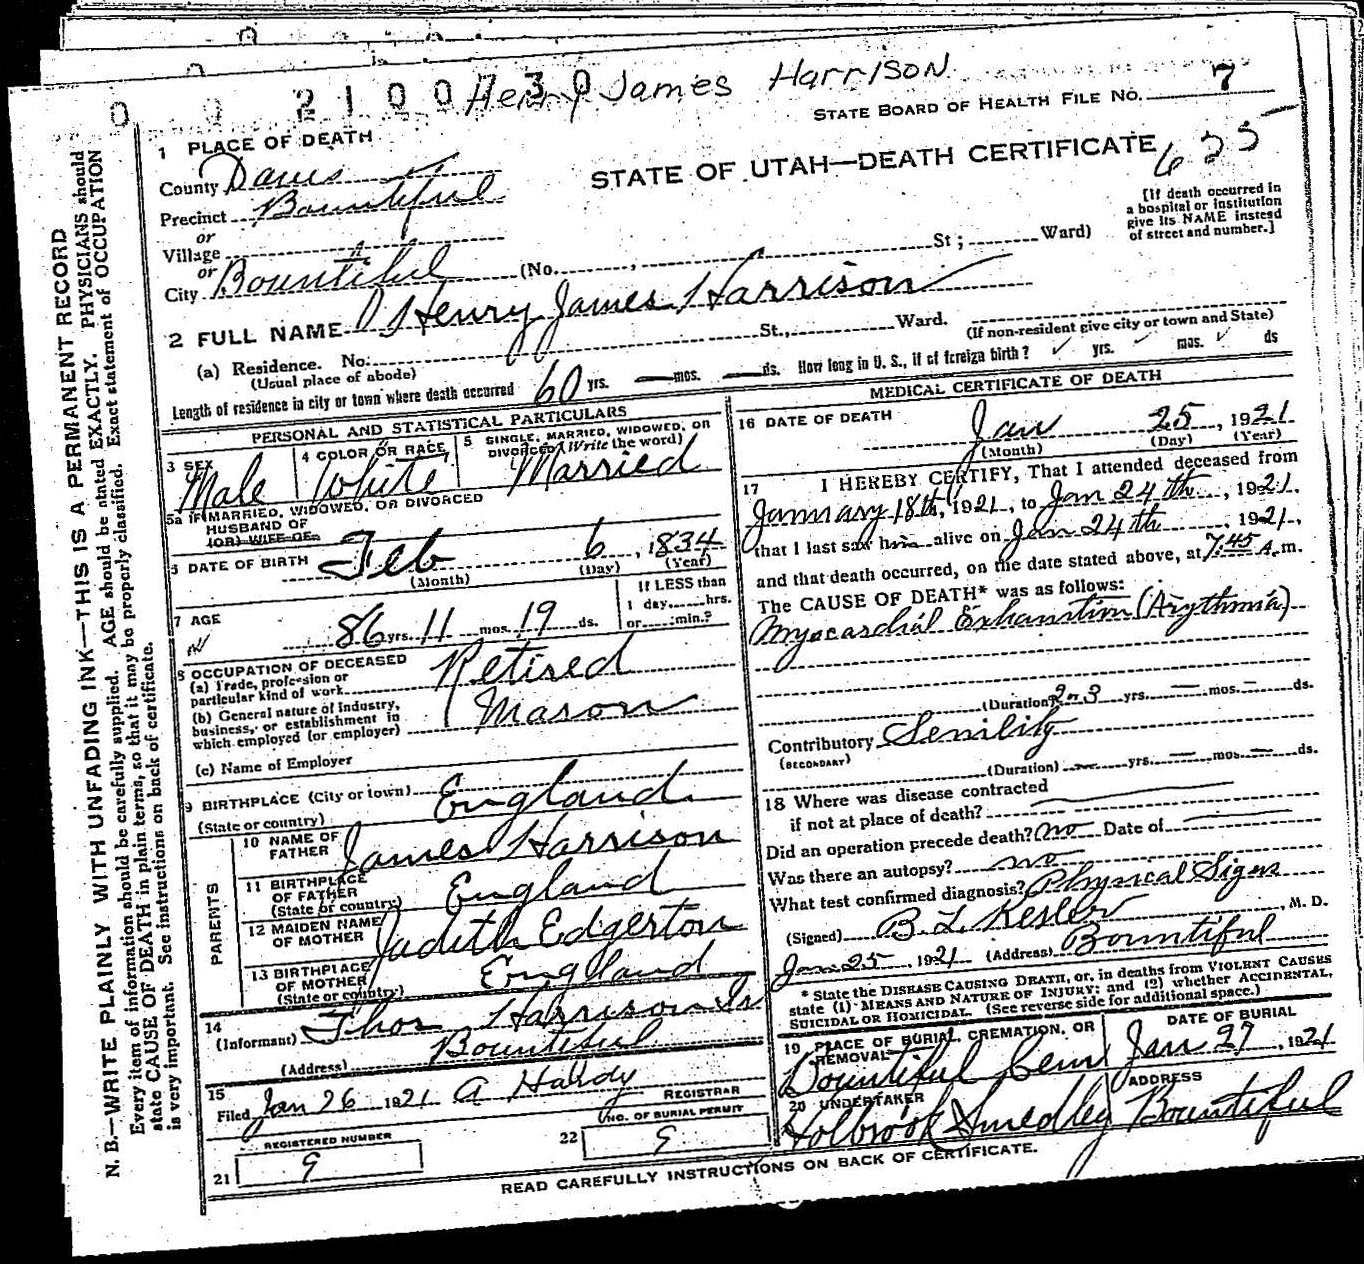 0 0 2100730
Henry James Harrison
STATE BOARD OF HEALTH FILE NO. 7
625
STATE OF UTAH—DEATH CERTIFICATE
1 PLACE OF DEATH
County Davis
Precinct Bountiful
or
Village
or
City Bountiful (No. , St; Ward)
[If death occurred in
a hospital or institution
give its NAME instead
of street and number.]
2 FULL NAME Henry James Harrison
(a) Residence. No. St., Ward.
(Usual place of abode)
(If non-resident give city or town and State)
Length of residence in city or town where death occurred 60 yrs. — mos. — ds. How long in U. S., if of foreign birth? ✓ yrs. ✓ mos. ✓ ds
PERSONAL AND STATISTICAL PARTICULARS
3 SEX
Male
4 COLOR OR RACE
White
5 SINGLE, MARRIED, WIDOWED, OR
DIVORCED (Write the word)
Married
5a IF MARRIED, WIDOWED, OR DIVORCED
HUSBAND OF
(OR) WIFE OF
6 DATE OF BIRTH Feb 6, 1834
(Month) (Day) (Year)
7 AGE
86 yrs. 11 mos. 19 ds.
If LESS than
1 day, hrs.
or min.?
8 OCCUPATION OF DECEASED
(a) Trade, profession or
particular kind of work Retired
(b) General nature of industry,
business, or establishment in
which employed (or employer) Mason
(c) Name of Employer
9 BIRTHPLACE (City or town)
(State or country) England
PARENTS
10 NAME OF
FATHER James Harrison
11 BIRTHPLACE
OF FATHER
(State or country) England
12 MAIDEN NAME
OF MOTHER Judith Edgerton
13 BIRTHPLACE
OF MOTHER
(State or country) England
14
(Informant) Thos Harrison Jr.
(Address) Bountiful
15
Filed Jan 26 1921 A Hardy
REGISTRAR
REGISTERED NUMBER
21 9
NO. OF BURIAL PERMIT
22 9
MEDICAL CERTIFICATE OF DEATH
16 DATE OF DEATH
Jan 25, 1921
(Month) (Day) (Year)
17 I HEREBY CERTIFY, That I attended deceased from
January 18th, 1921, to Jan 24th, 1921,
that I last saw him alive on Jan 24th, 1921,
and that death occurred, on the date stated above, at 7:45 A. m.
The CAUSE OF DEATH* was as follows:
Myocardial Exhaustion (Arythmia)
(Duration) 2 or 3 yrs. — mos. — ds.
Contributory Senility
(SECONDARY)
(Duration) — yrs. — mos. — ds.
18 Where was disease contracted
if not at place of death?
Did an operation precede death? No Date of
Was there an autopsy? no
What test confirmed diagnosis? Physical Signs
(Signed) B. L. Kesler, M. D.
Jan 25, 1921 (Address) Bountiful
* State the DISEASE CAUSING DEATH, or, in deaths from VIOLENT CAUSES
state (1) MEANS AND NATURE OF INJURY; and (2) whether ACCIDENTAL,
SUICIDAL OR HOMICIDAL. (See reverse side for additional space.)
19 PLACE OF BURIAL, CREMATION, OR
REMOVAL
Bountiful Cem
DATE OF BURIAL
Jan 27, 1921
20 UNDERTAKER
Holbrook Smedley
ADDRESS
Bountiful
READ CAREFULLY INSTRUCTIONS ON BACK OF CERTIFICATE.
N. B.—WRITE PLAINLY WITH UNFADING INK—THIS IS A PERMANENT RECORD
Every item of information should be carefully supplied. AGE should be stated EXACTLY. PHYSICIANS should
state CAUSE OF DEATH in plain terms, so that it may be properly classified. Exact statement of OCCUPATION
is very important. See instructions on back of certificate.